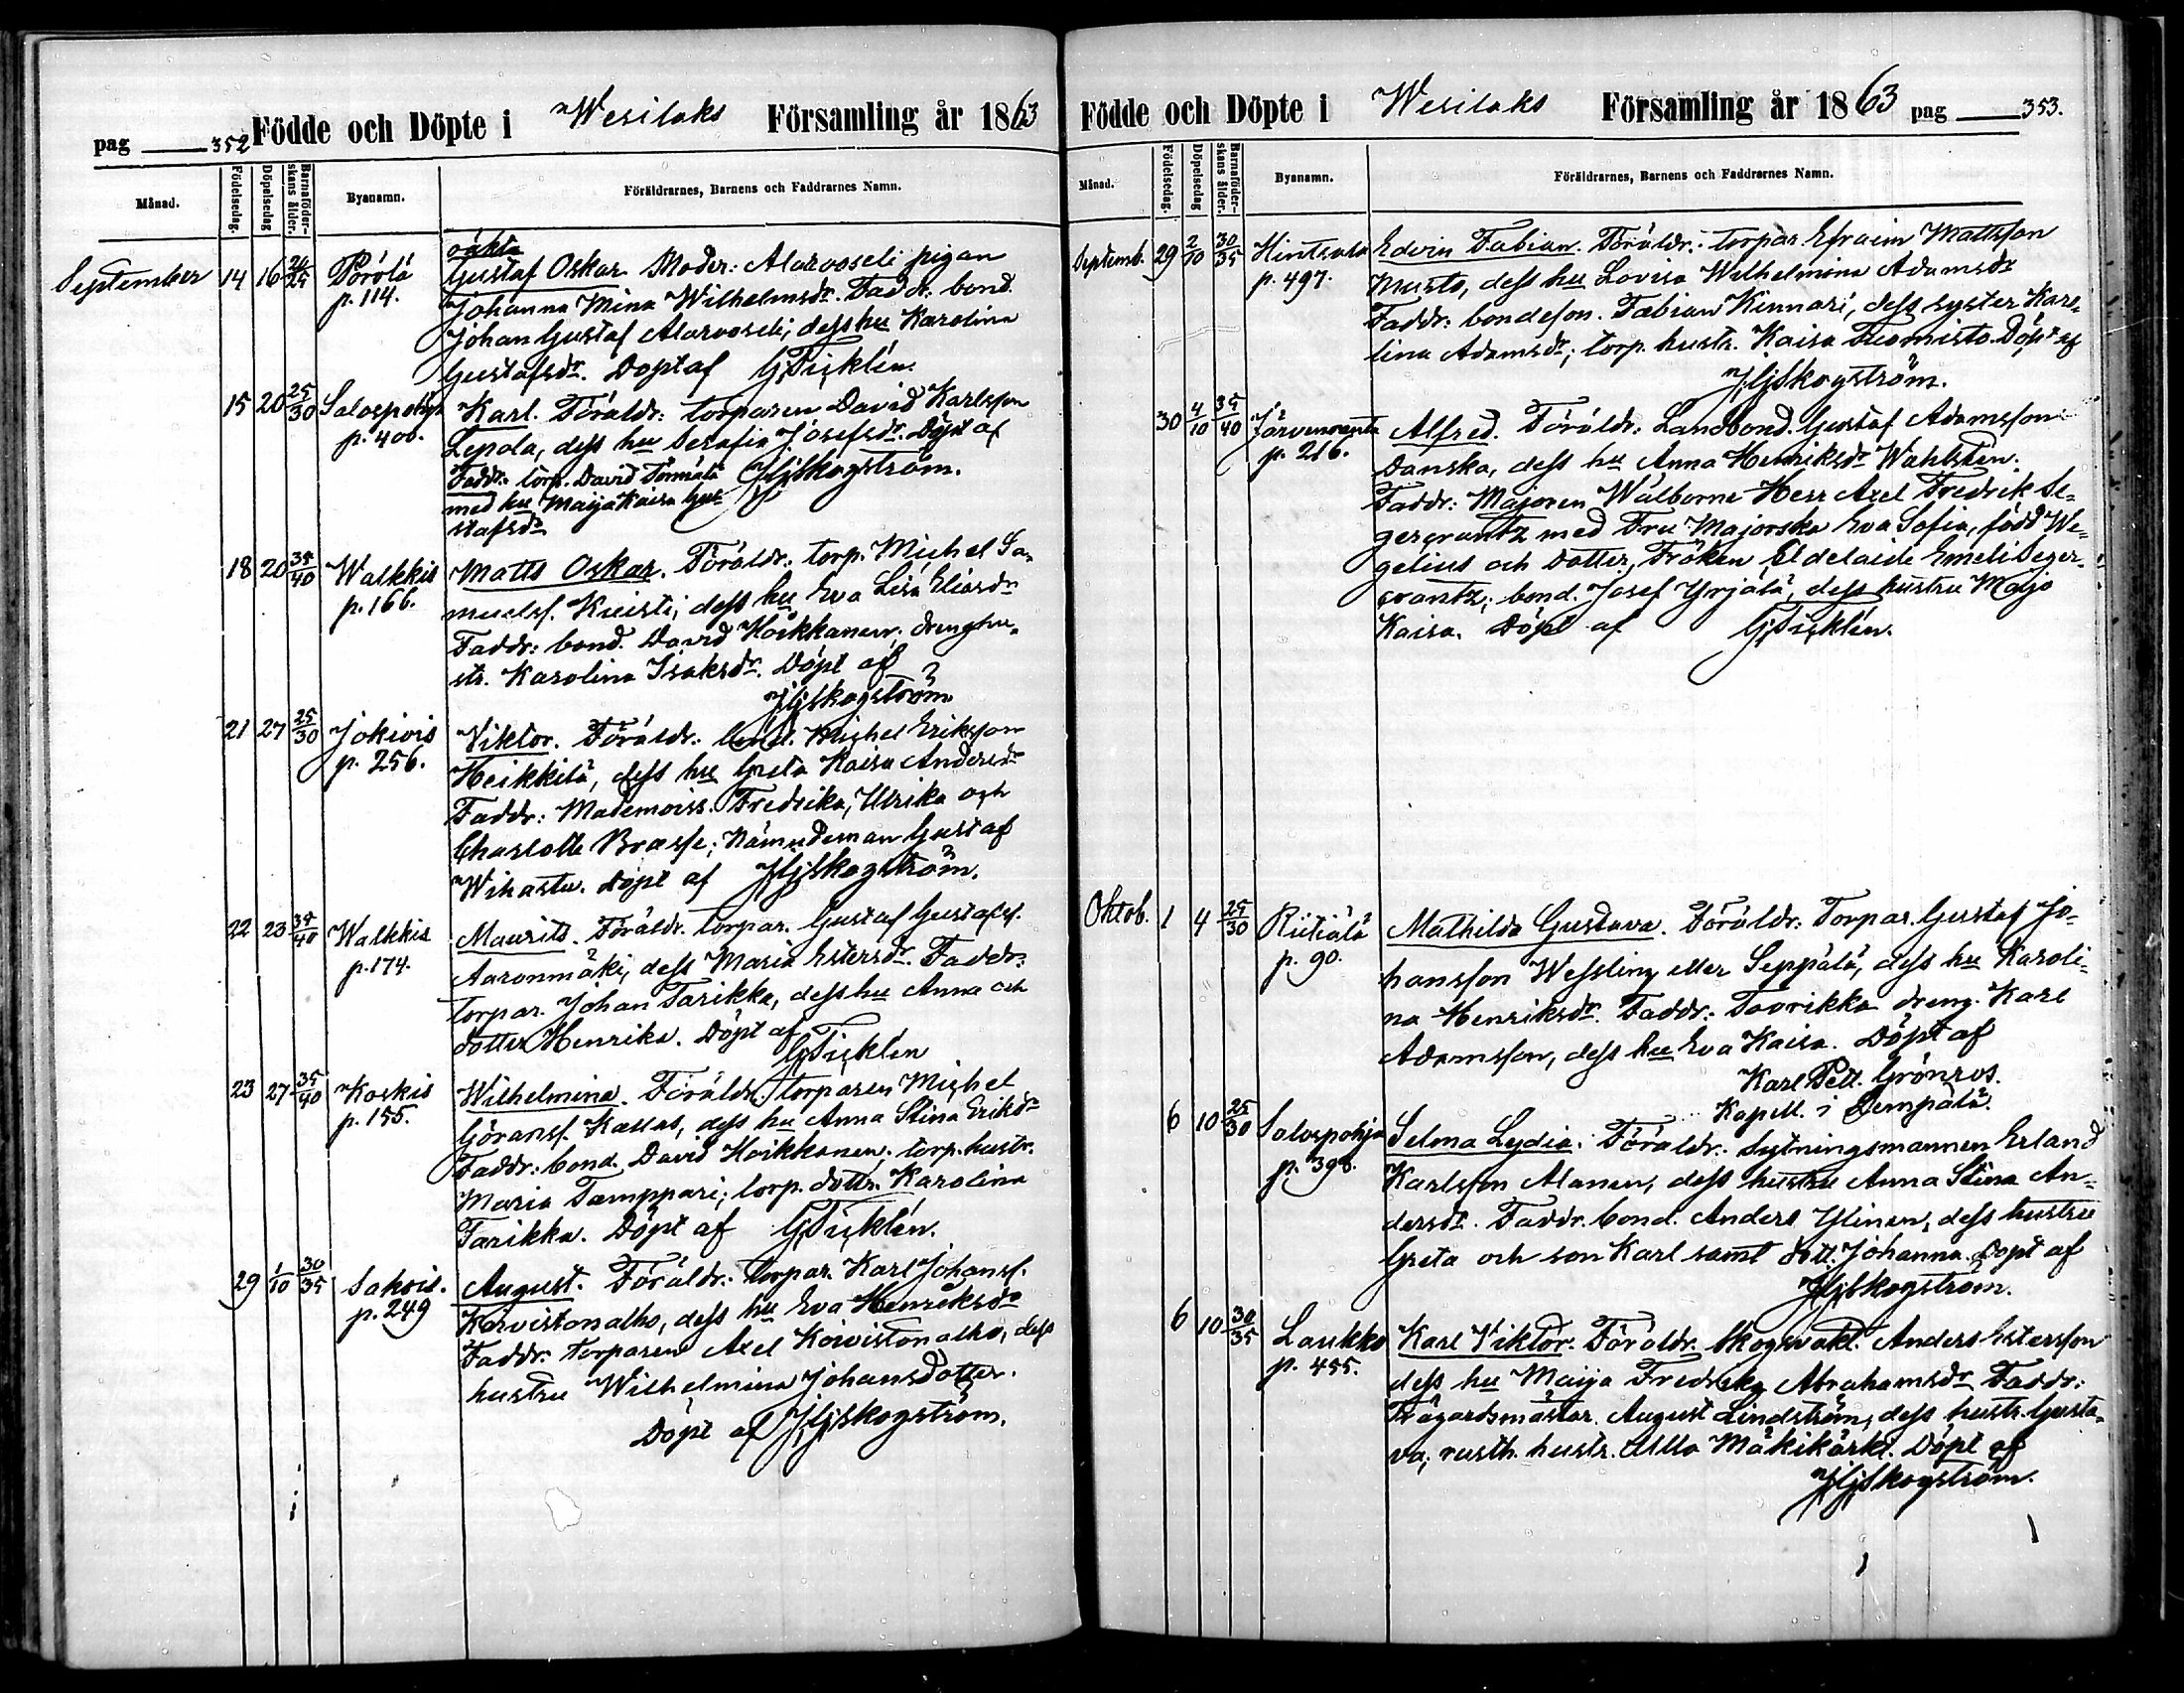 pag 352 Födde och Döpte i Wesilaks Församling år 1863
Månad. Födelsedag. Döpelsedag Barnaföder-skans ålder. Byanamn. Föräldrarnes, Barnens och Faddrarnes Namn.
oäkta
September 14 16 20/25 Pörölä Gustaf Oskar. Moder: Alarooseli pigan
p. 114. Johanna Mina Wilhelmsdr. Faddr. bond.
Johan Gustaf Alarooseli, dess hu Karolina
Gustafsdr. Döpt af G. Ticklén.
15 20 25/30 Salospohja Karl. Föräldr: torparen David Karlsson
p. 400. Lepola, dess hu Serafia Josefsdr. Döpt af
Faddr: torp. David Törmälä HjSkogström.
med hu Maija Kaisa Gus
stafsdr
18 20 35/40 Walkkis Matts Oskar. Föräldr: torp. Michel Sa-
p. 166. muelsf. Kuisti, dess hu Eva Lisa Eliasdr
Faddr: bond. David Hoikkanen; drenghu-
str. Karolina Isaksdr. Döpt af
HjSkogström
21 27 25/30 Jokiois Viktor. Föräldr: bond. Michel Eriksson
p. 256. Heikkilä, dess hu Greta Kaisa Andersdr
Faddr: Mademoiss. Fredrika, Ulrika och
Charlotte Brasse; Nämndeman Gustaf
Wihastu. Döpt af HjSkogström.
22 23 35/40 Walkkis Maurits. Föräldr. torpar. Gustaf Gustafsf.
p. 174. Aaronmäki, dess Maria Estersdr. Faddr:
torpar. Johan Tarikka, dess hu Anna och
dotter Henrika. Döpt af
G. Ticklén
23 27 35/40 Koskis Wilhelmina. Föräldr: torparen Michel
p. 155. Göransf. Kallas, dess hu Anna Stina Eriksdr
Faddr: bond. David Hoikkanen; torp. hustr.
Maria Tamppari; torp. dottr. Karolina
Tarikka. Döpt af G. Ticklén.
29 1/10 30/35 Sakois. August. Föräldr: torpar. Karl Johansf.
p. 249 Koivistonalho, dess hu Eva Henriksdr
Faddr. torparen Axel Koivistonalho, dess
hustru Wilhelmina Johansdotter.
Döpt af HjSkogström.
Födde och Döpte i Wesilaks Församling år 1863 pag 353.
Månad. Födelsedag. Döpelsedag Barnaföder-skans ålder. Byanamn. Föräldrarnes, Barnens och Faddrarnes Namn.
Septemb. 29 2/10 30/35 Hintsala Edvin Fabian. Föräldr: torpar Efraim Mattsson
p. 497. Musto, dess hu Lovisa Wilhelmina Adamsdr
Faddr: bondeson. Fabian Kinnari, dess syster Karo-
lina Adamsdr; torp. hustr. Kaisa Tuomisto. Döpt af
HjSkogström.
30 4/10 35/40 Järvenranta Alfred. Föräldr: Landbond. Gustaf Adamsson
p. 216. Danska, dess hu Anna Henriksdr Wahlstén.
Faddr: Majoren Wälborne Herr Axel Fredrik Se-
gercrantz med Fru Majorska Eva Sofia, född We-
gelius och dotter, Fröken Adelaide Emeli Seger-
crantz; bond. Josef Yrjälä, dess hustru Maja
Kaisa. Döpt af G. Ticklén.
Oktob. 1 4 25/30 Riitiälä Mathilda Gustava. Föräldr: Torpar. Gustaf Jo-
p. 90. hansson Wessling eller Seppälä, dess hu Karoli-
na Henriksdr. Faddr: Taorikka dreng. Karl
Adamsson, dess hu Eva Kaisa. Döpt af
Karl Pett. Grönros.
Kapell. i Lempälä.
6 10 25/30 Salospohja Selma Lydia. Föräldr: Sytningsmannen Erland
p. 398. Karlsson Alanen, dess hustru Anna Stina An-
dersdr. Faddr. bond. Anders Ylinen, dess hustru
Greta och son Karl samt dott. Johanna. Döpt af
HjSkogström.
6 10 30/35 Laukko Karl Viktor. Föräldr. Skogsvakt. Anders Estersson
p. 455. dess hu Maija Fredrika Abrahamsdr Faddr:
Trägårdsmästar. August Lindström, dess hustr. Gusta-
va; rusth. hustr. Ulla Mäkikärki. Döpt af
HjSkogström.